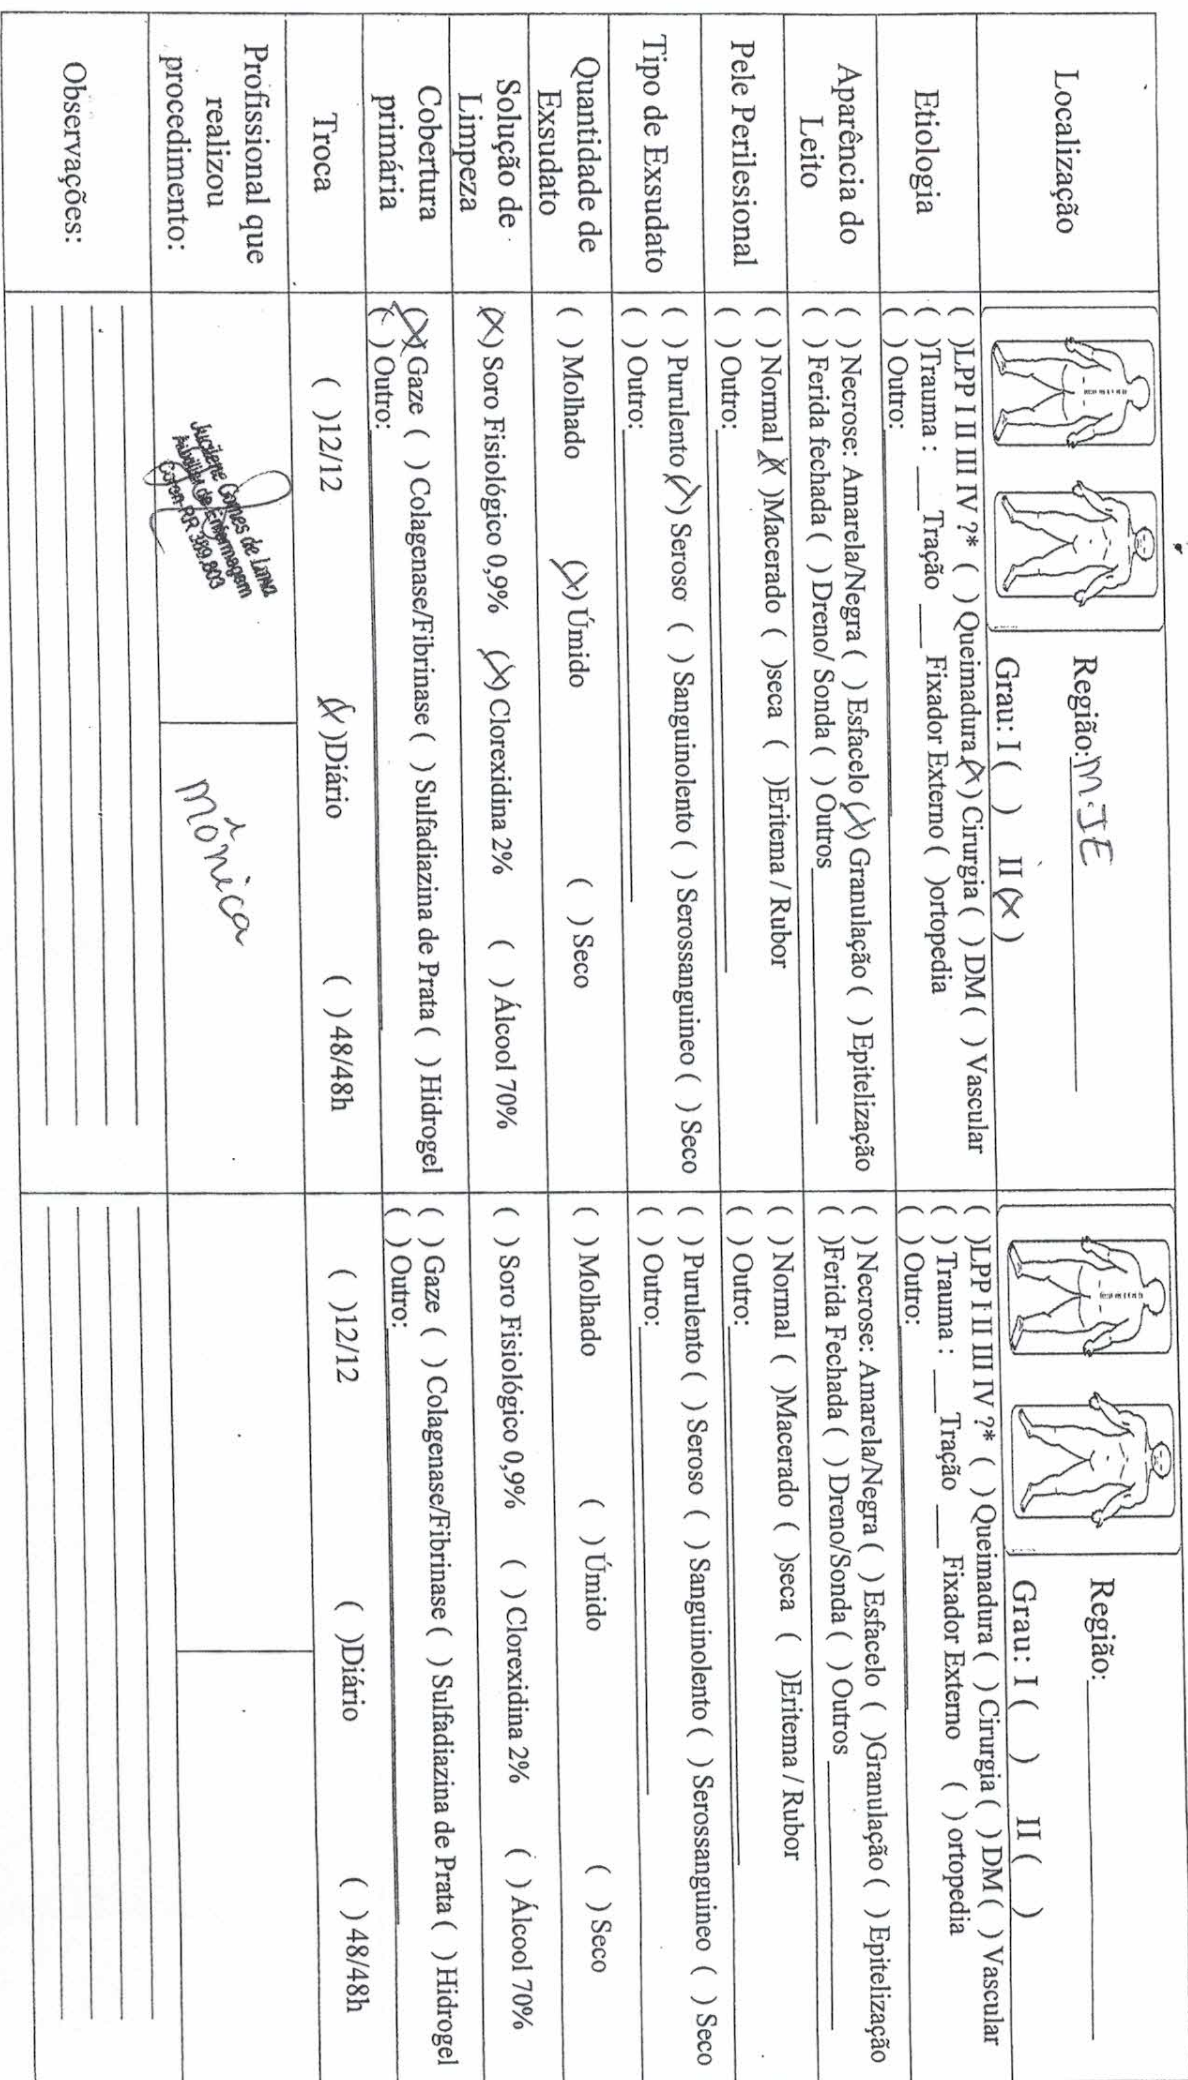 Localização
Região: M.IE
Grau: I ( ) II (X)
Região:
Grau: I ( ) II ( )
Etiologia
( )LPP I II III IV ?* ( ) Queimadura (X) Cirurgia ( ) DM ( ) Vascular
( )Trauma : ___Tração ___ Fixador Externo ( )ortopedia
( ) Outro:
( )LPP I II III IV ?* ( ) Queimadura ( ) Cirurgia ( ) DM ( ) Vascular
( ) Trauma : ___Tração ___ Fixador Externo ( ) ortopedia
( ) Outro:
Aparência do
Leito
( ) Necrose: Amarela/Negra ( ) Esfacelo (X) Granulação ( ) Epitelização
( ) Ferida fechada ( ) Dreno/ Sonda ( ) Outros
( ) Necrose: Amarela/Negra ( ) Esfacelo ( )Granulação ( ) Epitelização
( )Ferida Fechada ( ) Dreno/Sonda ( ) Outros
Pele Perilesional
( ) Normal (X )Macerado ( )seca ( )Eritema / Rubor
( ) Outro:
( ) Normal ( )Macerado ( )seca ( )Eritema / Rubor
( ) Outro:
Tipo de Exsudato
( ) Purulento (X) Seroso ( ) Sanguinolento ( ) Serossanguineo ( ) Seco
( ) Outro:
( ) Purulento ( ) Seroso ( ) Sanguinolento ( ) Serossanguineo ( ) Seco
( ) Outro:
Quantidade de
Exsudato
( ) Molhado (X) Úmido ( ) Seco
( ) Molhado ( ) Úmido ( ) Seco
Solução de
Limpeza
(X) Soro Fisiológico 0,9% (X) Clorexidina 2% ( ) Álcool 70%
( ) Soro Fisiológico 0,9% ( ) Clorexidina 2% ( ) Álcool 70%
Cobertura
primária
(X) Gaze ( ) Colagenase/Fibrinase ( ) Sulfadiazina de Prata ( ) Hidrogel
( ) Outro:
( ) Gaze ( ) Colagenase/Fibrinase ( ) Sulfadiazina de Prata ( ) Hidrogel
( ) Outro:
Troca
( )12/12 (X )Diário ( ) 48/48h
( )12/12 ( )Diário ( ) 48/48h
Profissional que
realizou
procedimento:
Jucilene Gomes de Lima
Auxiliar de Enfermagem
Coren-RR 389.803
Mônica
Observações: